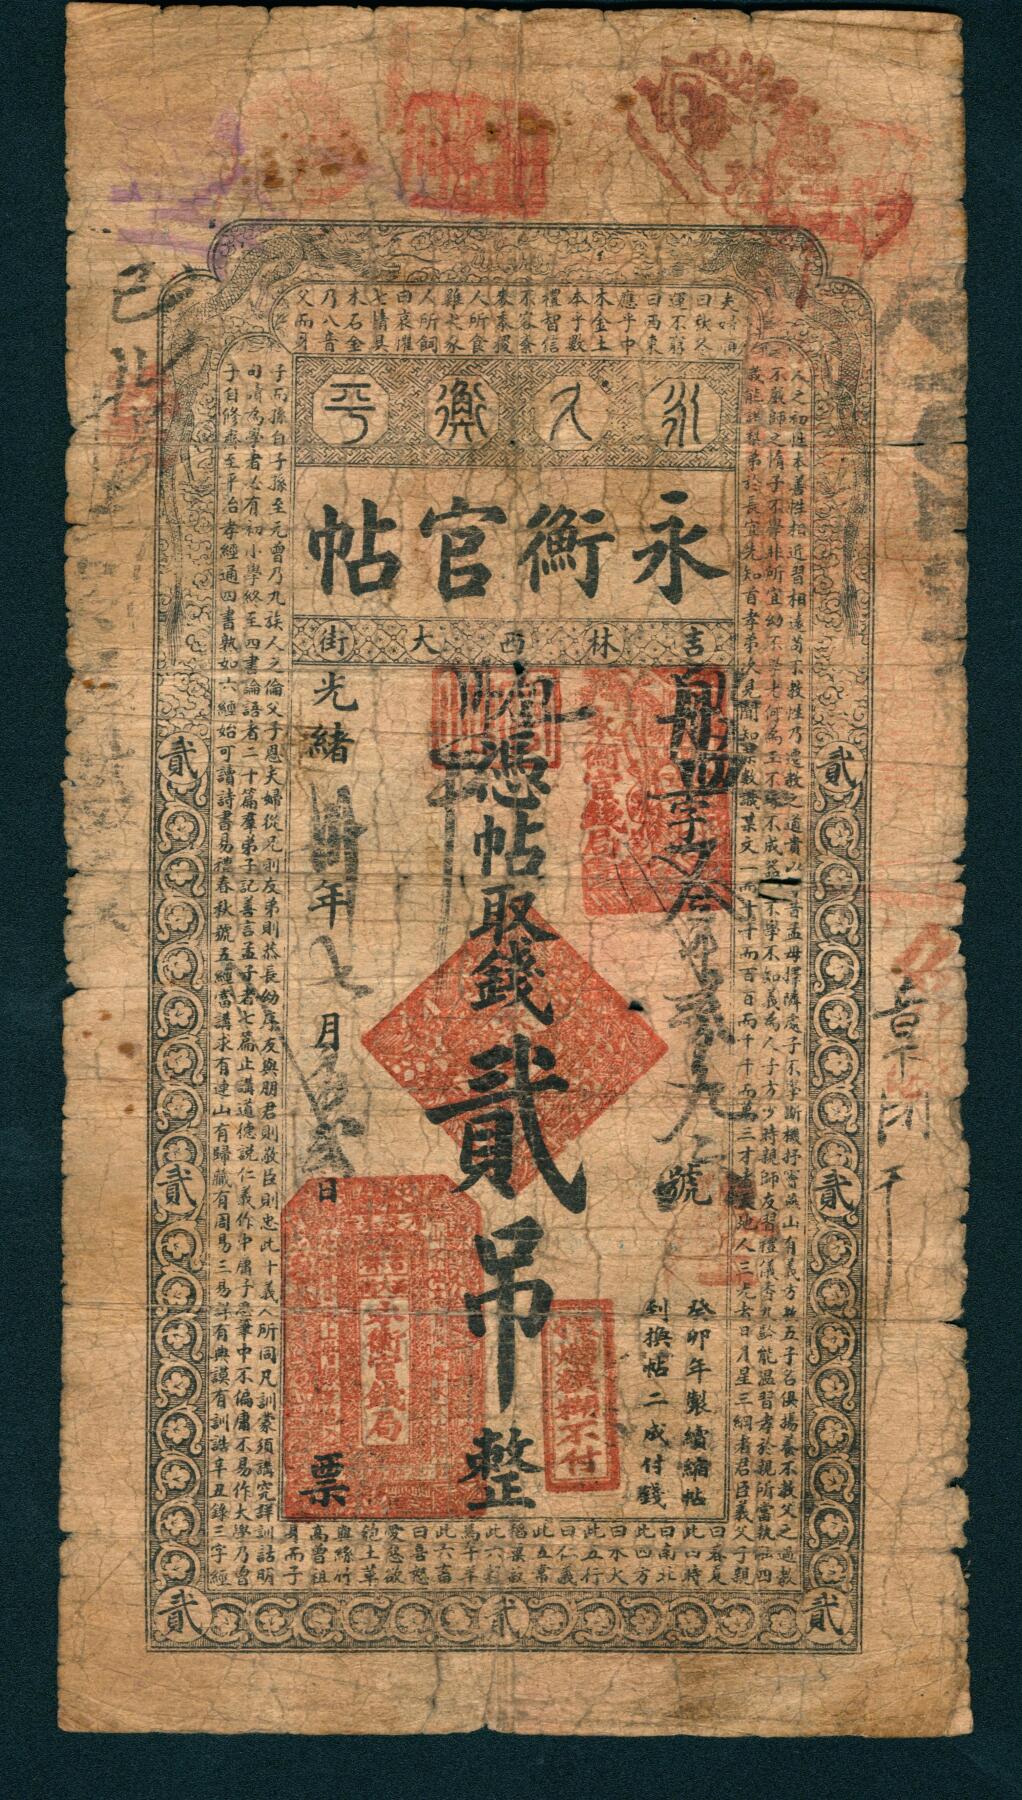 永衡官帖
吉林西大街
號
憑帖取錢貳吊整
光緒卅年七月
日
票
癸卯年製續縮帖
到換帖二成付錢
永衡官錢局
永衡官錢局
糊不付
貳
貳
貳
貳
貳
貳
貳
人之初性本善性相近習相遠苟不教性乃遷教之道貴以
昔孟母擇隣處子不學斷機杼竇燕山有義方教五子名俱揚養不教父之過教
不嚴師之惰子不學非所宜幼不學老何為玉不琢不成器人不學不知義為人子方少時親師友習禮儀香九齡能溫習孝於親所當執融四
歲能讓梨弟於長宜先知首孝弟次見聞知某數識某文一而十十而百百而千千而萬三才者天地人三光者日月星三綱者君臣義父子親
曰春夏
此四時
曰南北
此四方
曰水火
此五行
曰仁義
此五常
稻粱菽
此六穀
馬牛羊
此六畜
曰喜怒
愛惡欲
匏土革
與絲竹
高曾祖
身而子
曰秋冬
運不窮
曰西東
應乎中
木金土
本乎數
禮智信
不容紊
麥黍稷
人所食
雞犬豕
人所飼
曰哀懼
七情具
木石金
乃八音
父而身
子而孫自子孫至元曾乃九族人之倫父子恩夫婦從兄則友弟則恭長幼序友與朋君則敬臣則忠此十義人所同凡訓蒙須講究詳訓詁明
句讀為學者必有初小學終至四書論語者二十篇羣弟子記善言孟子者七篇止講道德說仁義作中庸子思筆中不偏庸不易作大學乃曾
子自修齊至平治孝經通四書熟如六經始可讀詩書易禮春秋號五經當講求有連山有歸藏有周易三易詳有典謨有訓誥辛丑錄三字經